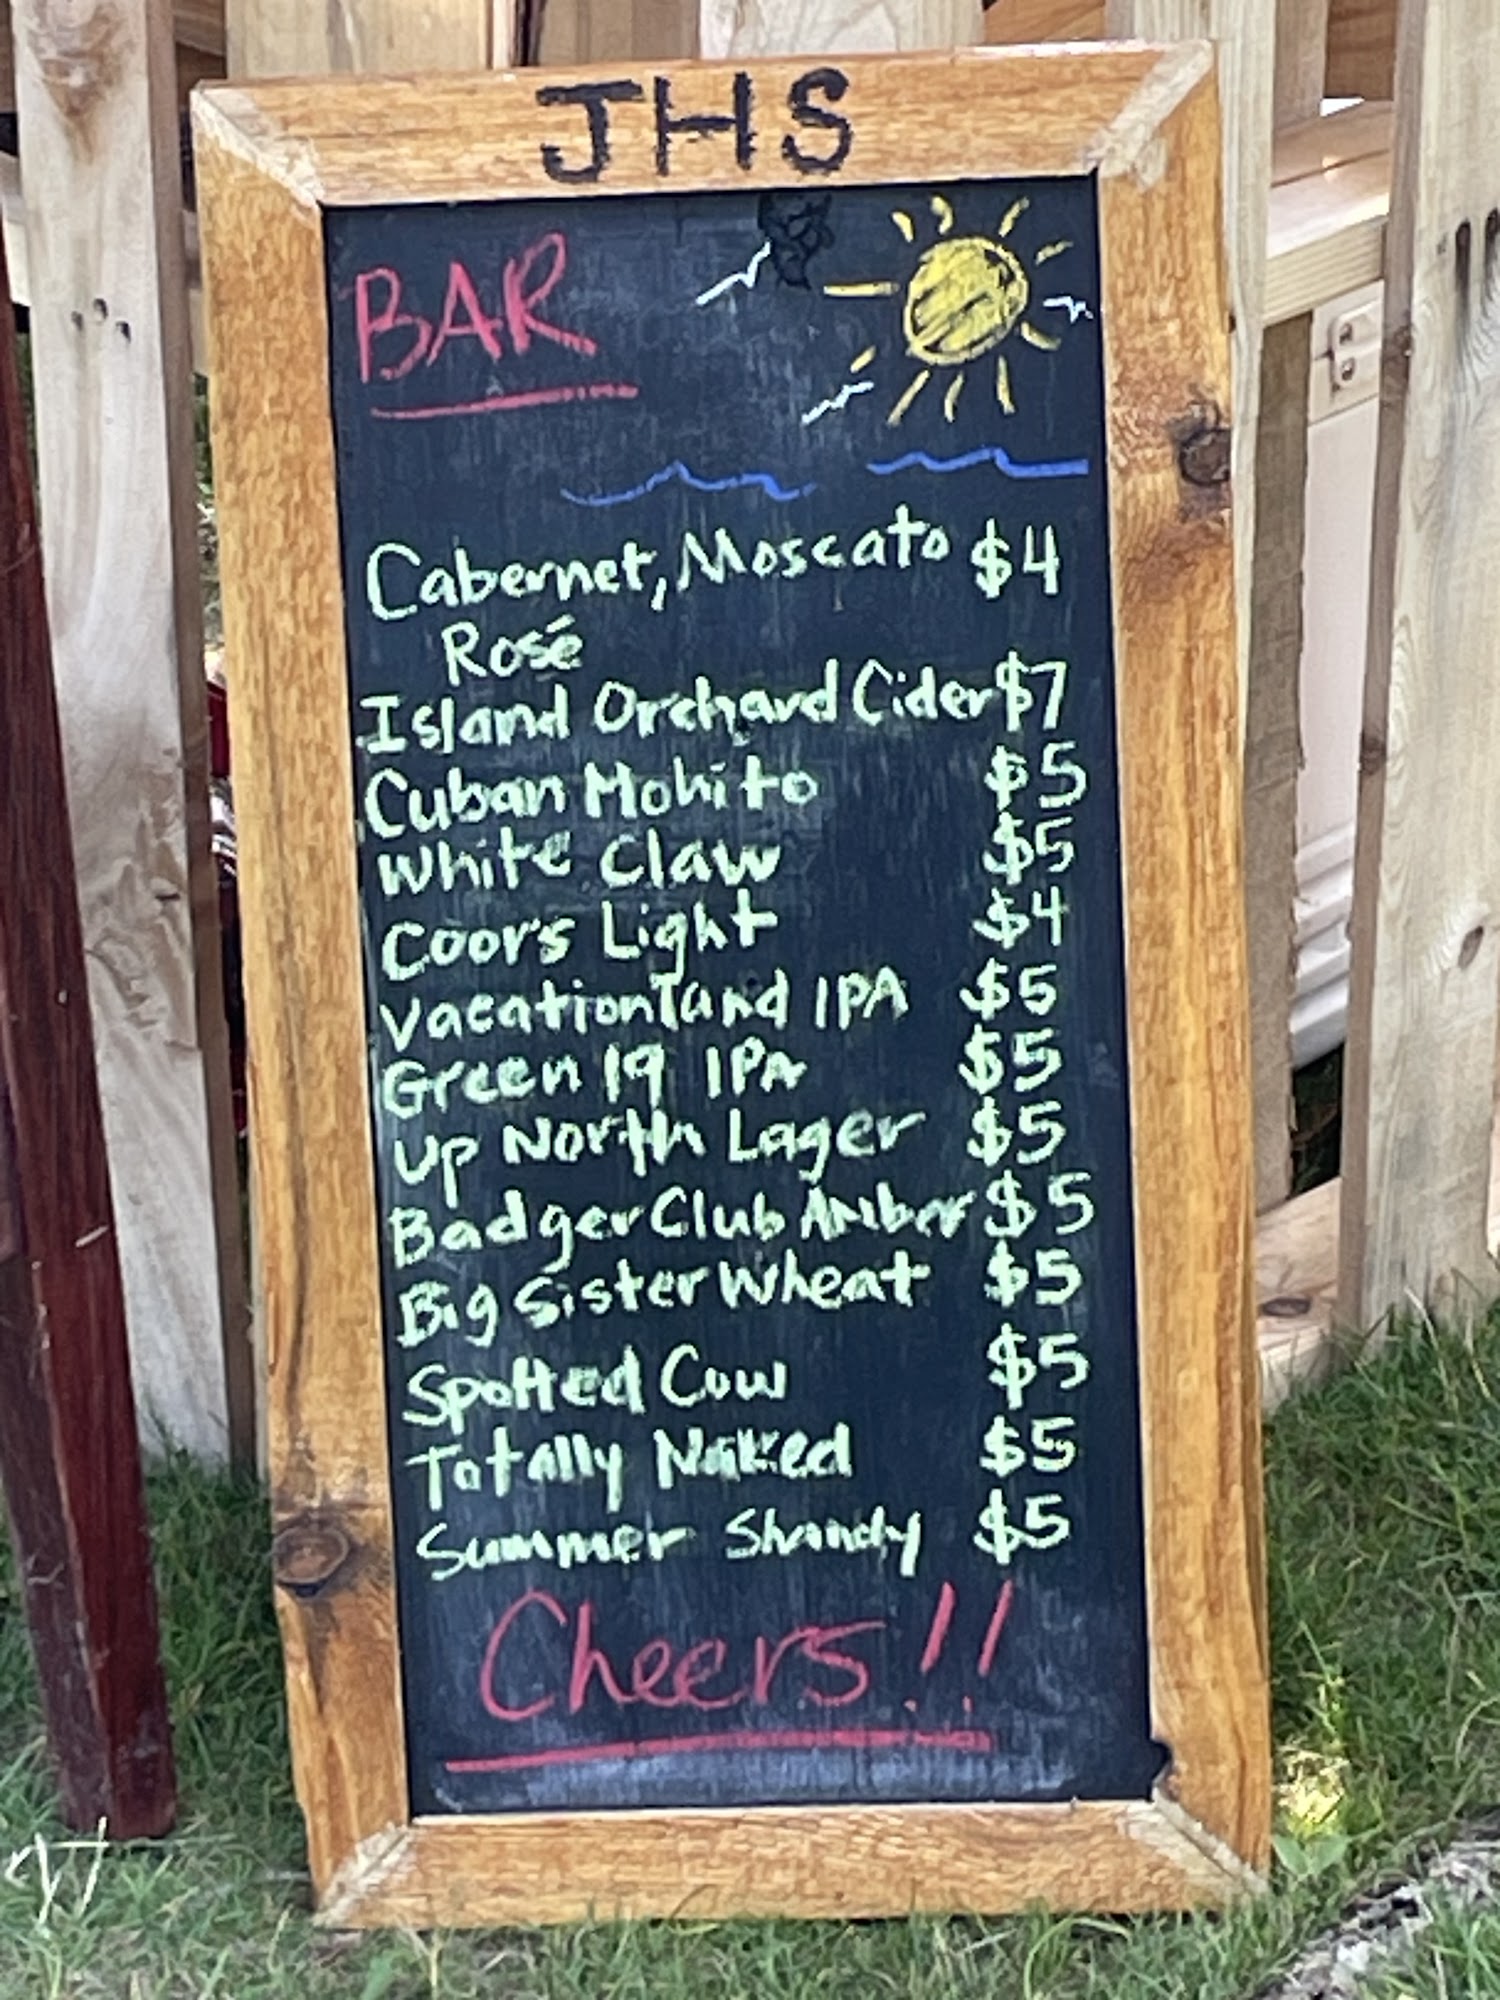 JHS
BAR
Cabernet, Moscato $4
Rosé
Island Orchard Cider $7
Cuban Mohito $5
White Claw $5
Coors Light $4
Vacationland IPA $5
Green 19 IPA $5
Up North Lager $5
Badger Club Amber $5
Big Sister Wheat $5
Spotted Cow $5
Totally Naked $5
Summer Shandy $5
Cheers!!